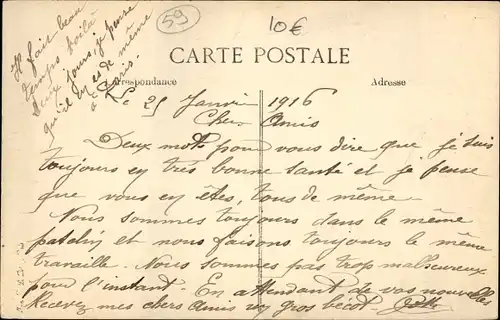 Il fait beau
temps voilà
deux jours, je pense
qu'il en es de même
à Paris.
59
10€
CARTE POSTALE
Correspondance
Adresse
Le 25 Janvier 1916
Cher Amis
Deux mots pour vous dire que je suis
toujours en très bonne santé et je pense
que vous en êtes, tous de même.
Nous sommes toujours dans le même
patelin et nous faisons toujours le même
travaille. Nous sommes pas trop malheureux
pour l'instant. En attendant de vos nouvelles
Recevez mes chers Amis un gros bécot.